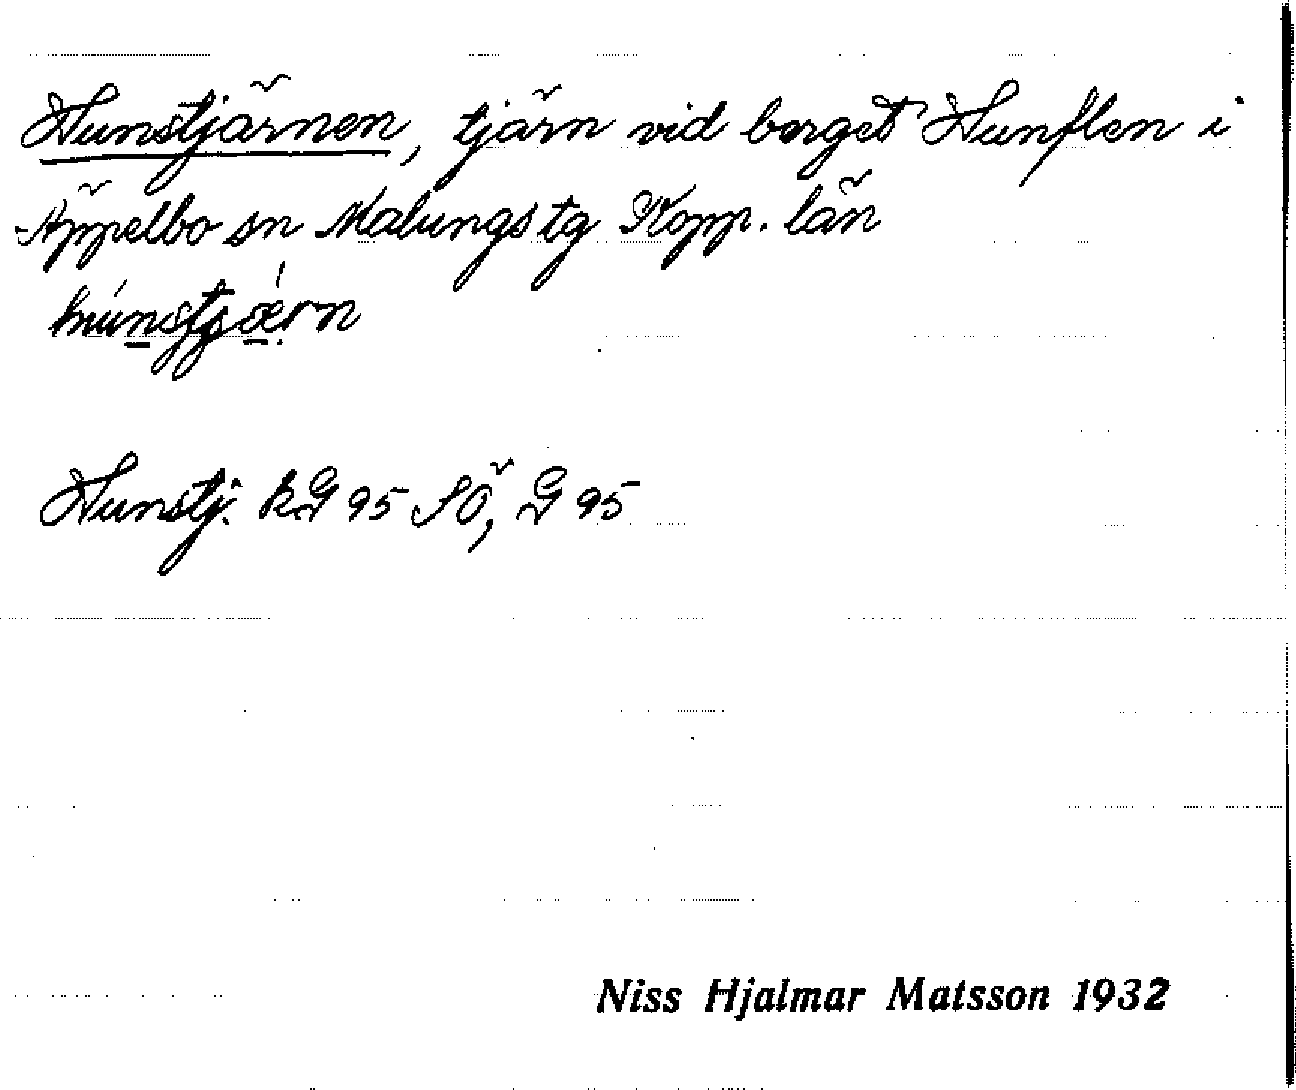 Hunstjärnen, tjärn vid berget Hunflen i
Äppelbo sn Malungs tg Kopp. län
húnstjǽrn
Hunstj. kG 95 SÖ, G 95
Niss Hjalmar Matsson 1932